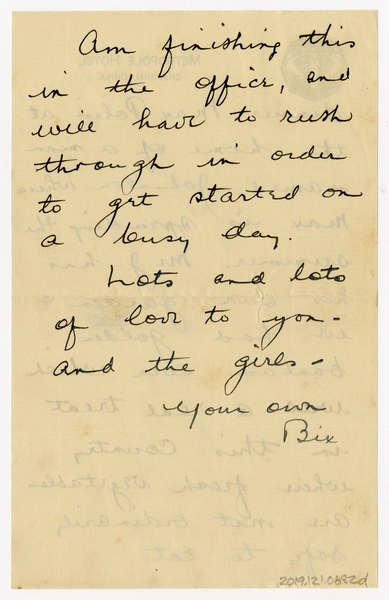 Am finishing this
in the office, and
will have to rush
through in order
to get started on
a busy day.
Lots and lots
of love to you -
and the girls -
Your own
Bix
2019.121.0682d